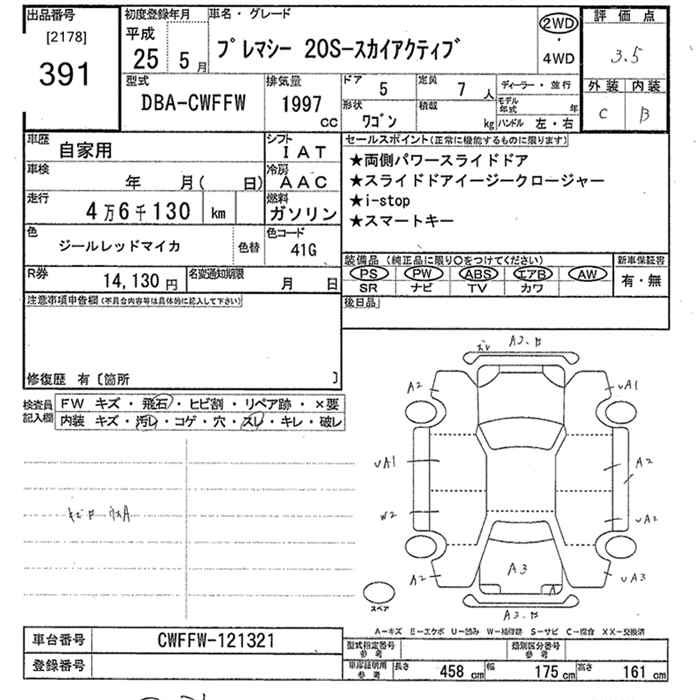 出品番号
[2178]
391
初度登録年月
平成
25 5月
車名・グレード
プレマシー 20S-スカイアクティブ
2WD
・
4WD
評価点
3.5
外装 内装
C B
型式
DBA-CWFFW
排気量
1997 cc
ドア 5
定員 7 人
形状 ワゴン
積載 kg
ディーラー・並行
モデル年式 年
ハンドル 左・右
車歴 自家用
シフト IAT
車検 年 月( 日)
冷房 AAC
走行 4万6千130 km
燃料 ガソリン
色 ジールレッドマイカ 色替
色コード 41G
R券 14,130円
名変通知期限 月 日
セールスポイント(正常に機能するものに限ります)
★両側パワースライドドア
★スライドドアイージークロージャー
★i-stop
★スマートキー
装備品(純正品に限り○をつけてください)
PS PW ABS エアB AW
SR ナビ TV カワ
新車保証書
有・無
後日品
注意事項申告欄(不具合内容等は具体的に記入して下さい)
修復歴 有〔箇所 〕
検査員記入欄
FW キズ・飛石・ヒビ割・リペア跡・×要
内装 キズ・汚レ・コゲ・穴・スレ・キレ・破レ
A2
UA1
UA1
A2
W2
UA2
A2
A3
A
UA3
スペア
A-キズ E-エクボ U-凹み W-補修跡 S-サビ C-腐食 XX-交換済
車台番号 CWFFW-121321
登録番号
型式指定番号参考
類別区分番号参考
車庫証明用参考 長さ 458 cm 幅 175 cm 高さ 161 cm